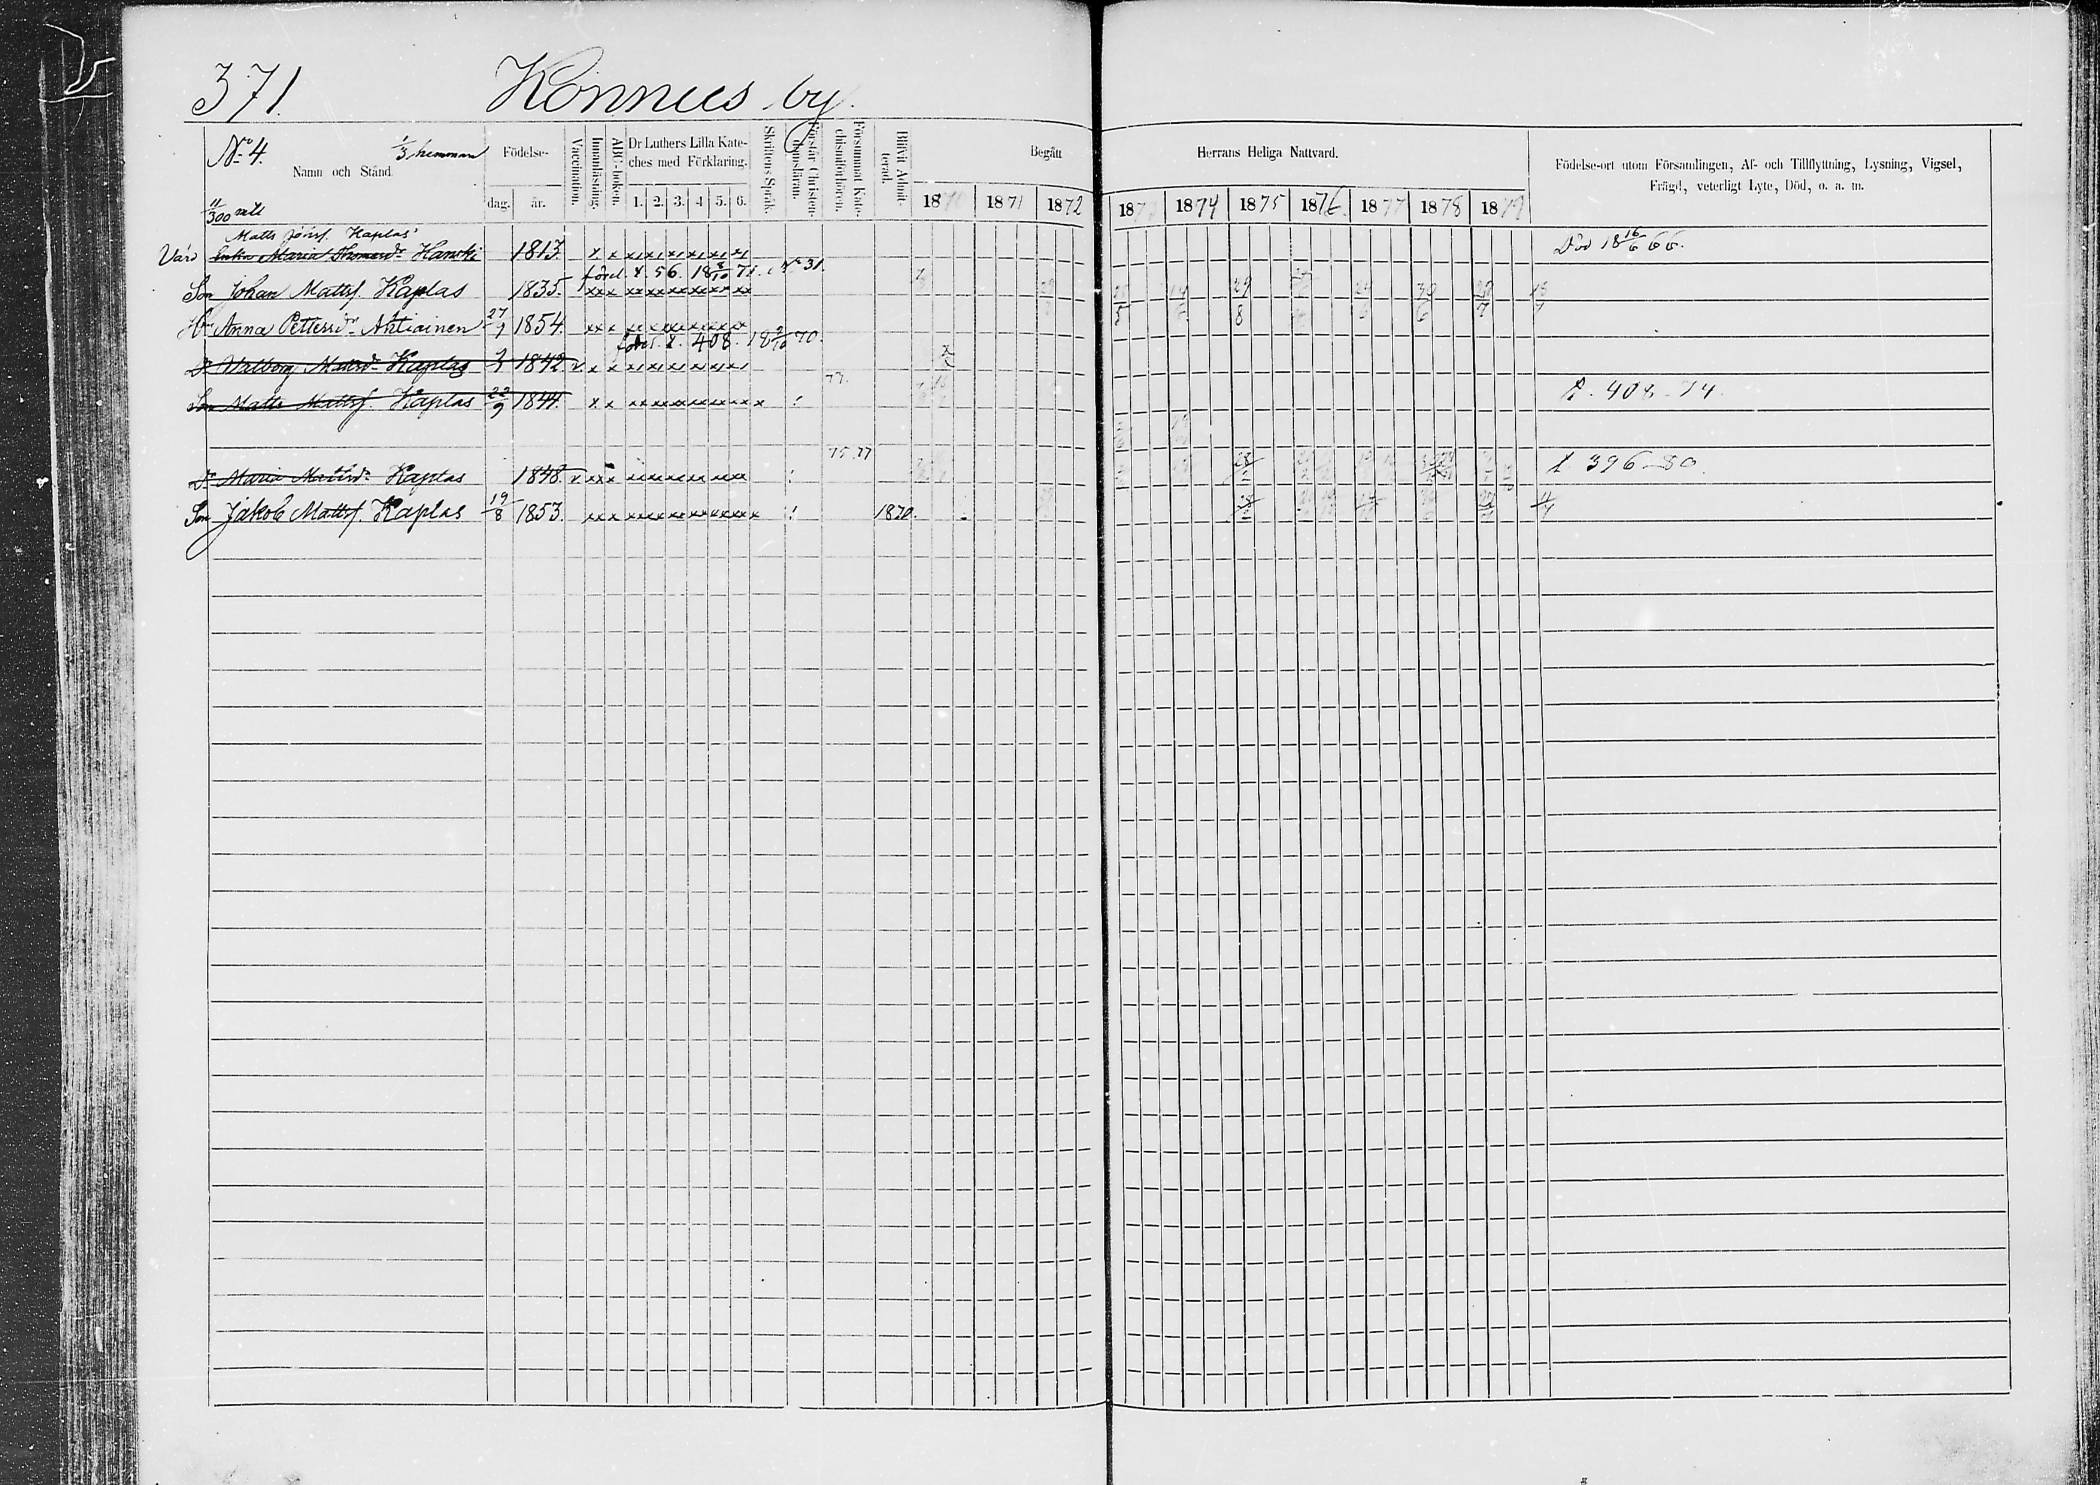 371. Konnus by.
No 4. 1/3 hemman
Namn och Stånd.
11/300 mtl
Födelse-
dag. år.
Vaccination.
Innanläsning.
ABC-boken.
Dr Luthers Lilla Kate-
ches med Förklaring.
1. 2. 3. 4 5. 6.
Skriftens Språk.
Förstår Christen-
domsläran.
Försummat Kate-
chismiförhören.
Blifvit Admit-
terad.
Begått Herrans Heliga Nattvard.
1870 1871 1872 1873 1874 1875 1876 1877 1878 1879
Födelse-ort utom Församlingen, Af- och Tillflyttning, Lysning, Vigsel,
Frägd, veterligt Lyte, Död, o. a. m.
Matts Kaplas
Maria Hanski 1813. x x Död 18 16/6 66.
56. 18 8/10 71. No 31.
Son Johan Mattsf. Kaplas 1835. 29/8 30/6
Hu Anna Pettersdr Ahtiainen 27/7 1854.
408. 18 2/10 70.
Dr Walborg Mattsdr Kaplas 1842
77.
Son Matts Mattsf. Kaplas 22/9 1844. 408-74.
75. 77
Dr Maria Mattsdr Kaplas 1848. 396-80.
Son Jakob Mattsf. Kaplas 19/8 1853. 1870.